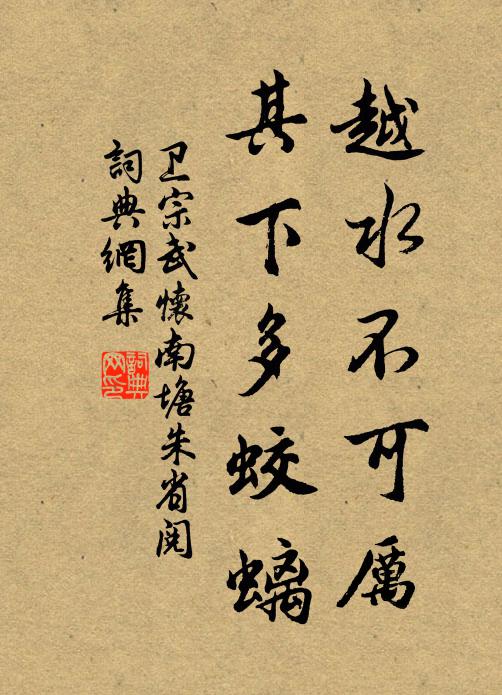 越水不可厲
其下多蛟螭
卫宗武懷南塘朱省閱
詞典網集
詞典網印